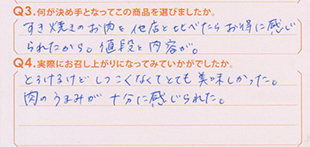 Q3.何が決め手となってこの商品を選びましたか。
すき焼きのお肉を他店と比べたらお得に感じ
られたから。値段と内容が。
Q4.実際にお召し上がりになってみていかがでしたか。
とろけるけどしつこくなくてとても美味しかった。
肉のうまみが十分に感じられた。